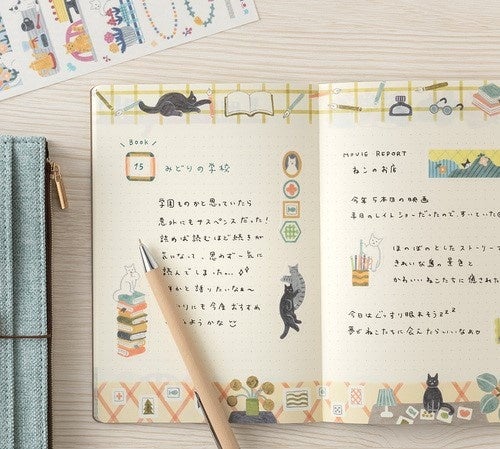 Book
15
みどりの学校
学園ものかと思っていたら
意外にもサスペンスだった!
読めば読むほど続きが
気になって、思わず一気に
読んでしまった…
かと語りたいなぁ〜
りにも今度おすすめ
ようかな
MOVIE REPORT
ねこのお店
今年5本目の映画
本日のレイトショーだったので、すいていた
ほのぼのとしたストーリーで
きれいな島の景色と
かわいいねこたちに癒された
今日はぐっすり眠れそうzzz
夢でねこたちに会えたらいいなぁ